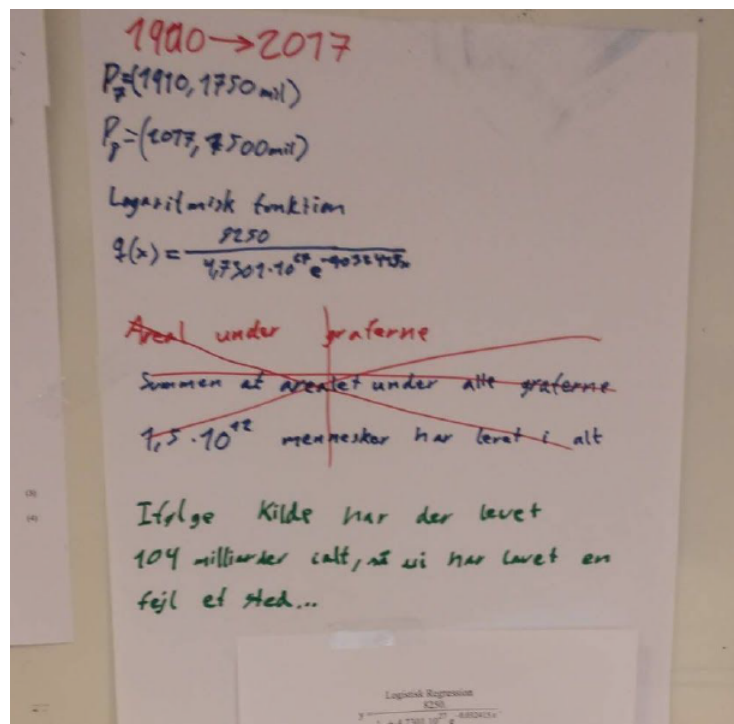 1910→2017
P₇=(1910, 1750 mil)
P₈=(2017, 7500mil)
Logaritmisk funktion
g(x) = 8250
4,7301·10²⁷e
Areal under graferne
Summen af arealet under alle graferne
1,5·10¹² mennesker har levet i alt
Ifølge Kilde har der levet
104 milliarder ialt, så vi har lavet en
fejl et sted...
(3)
(4)
Logistisk Regression
8250